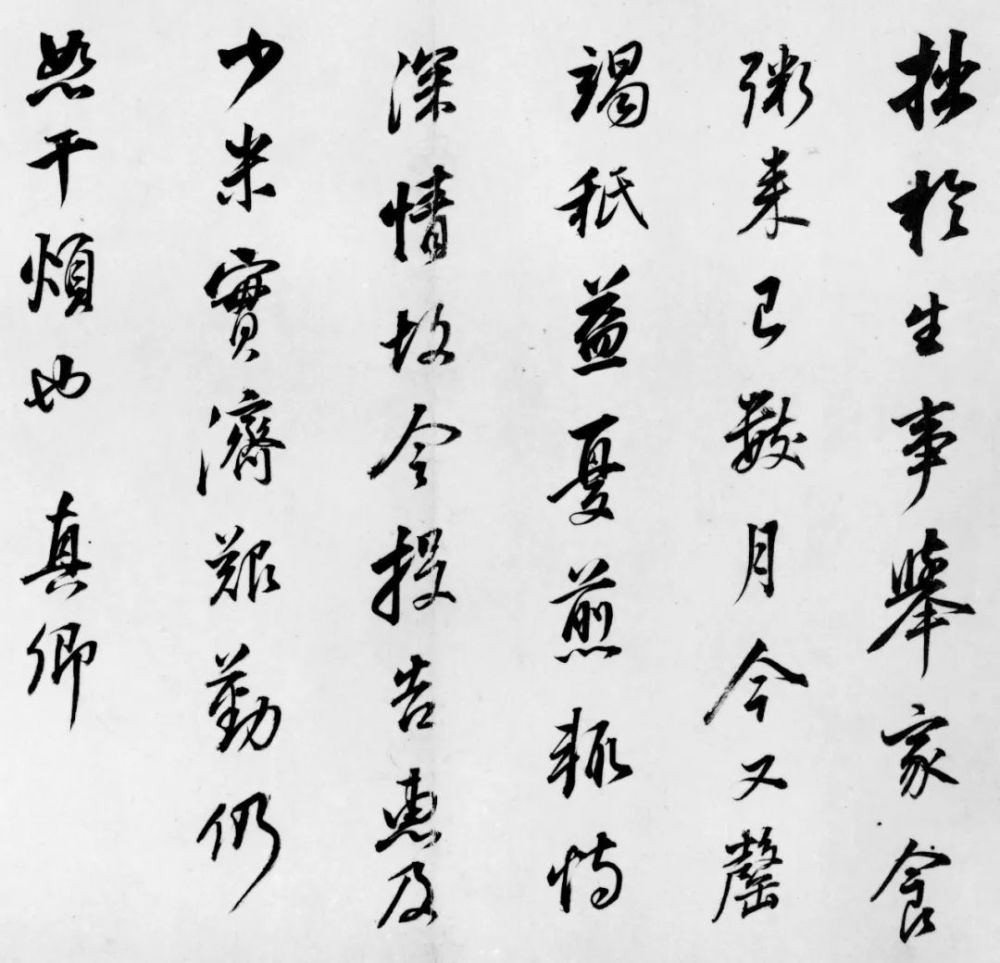 拙於生事舉家食
粥来已數月今又罄
竭秖益憂煎輒恃
深情故令投告惠及
少米實濟艱勤仍
恕干煩也 真卿